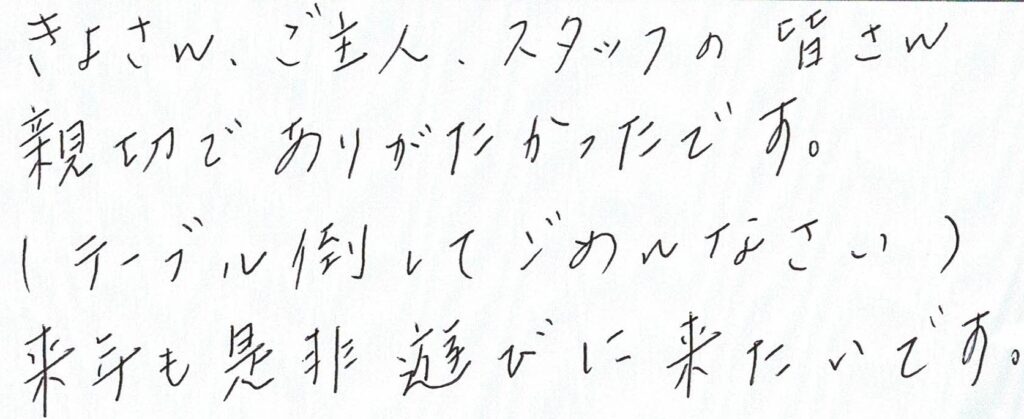 きよさん、ご主人、スタッフの皆さん
親切でありがたかったです。
(テーブル倒してごめんなさい)
来年も是非遊びに来たいです。